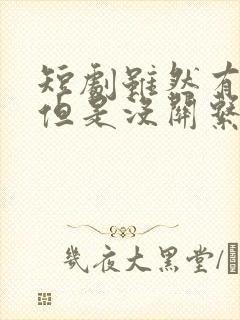 短劇雖然有
但是沒關繫
幾夜大黑堂/